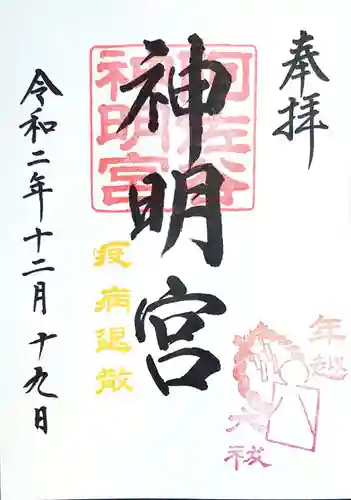 奉拝
神明宮
阿佐谷
神明宮
疫病退散
令和二年十二月十九日
年越
大祓